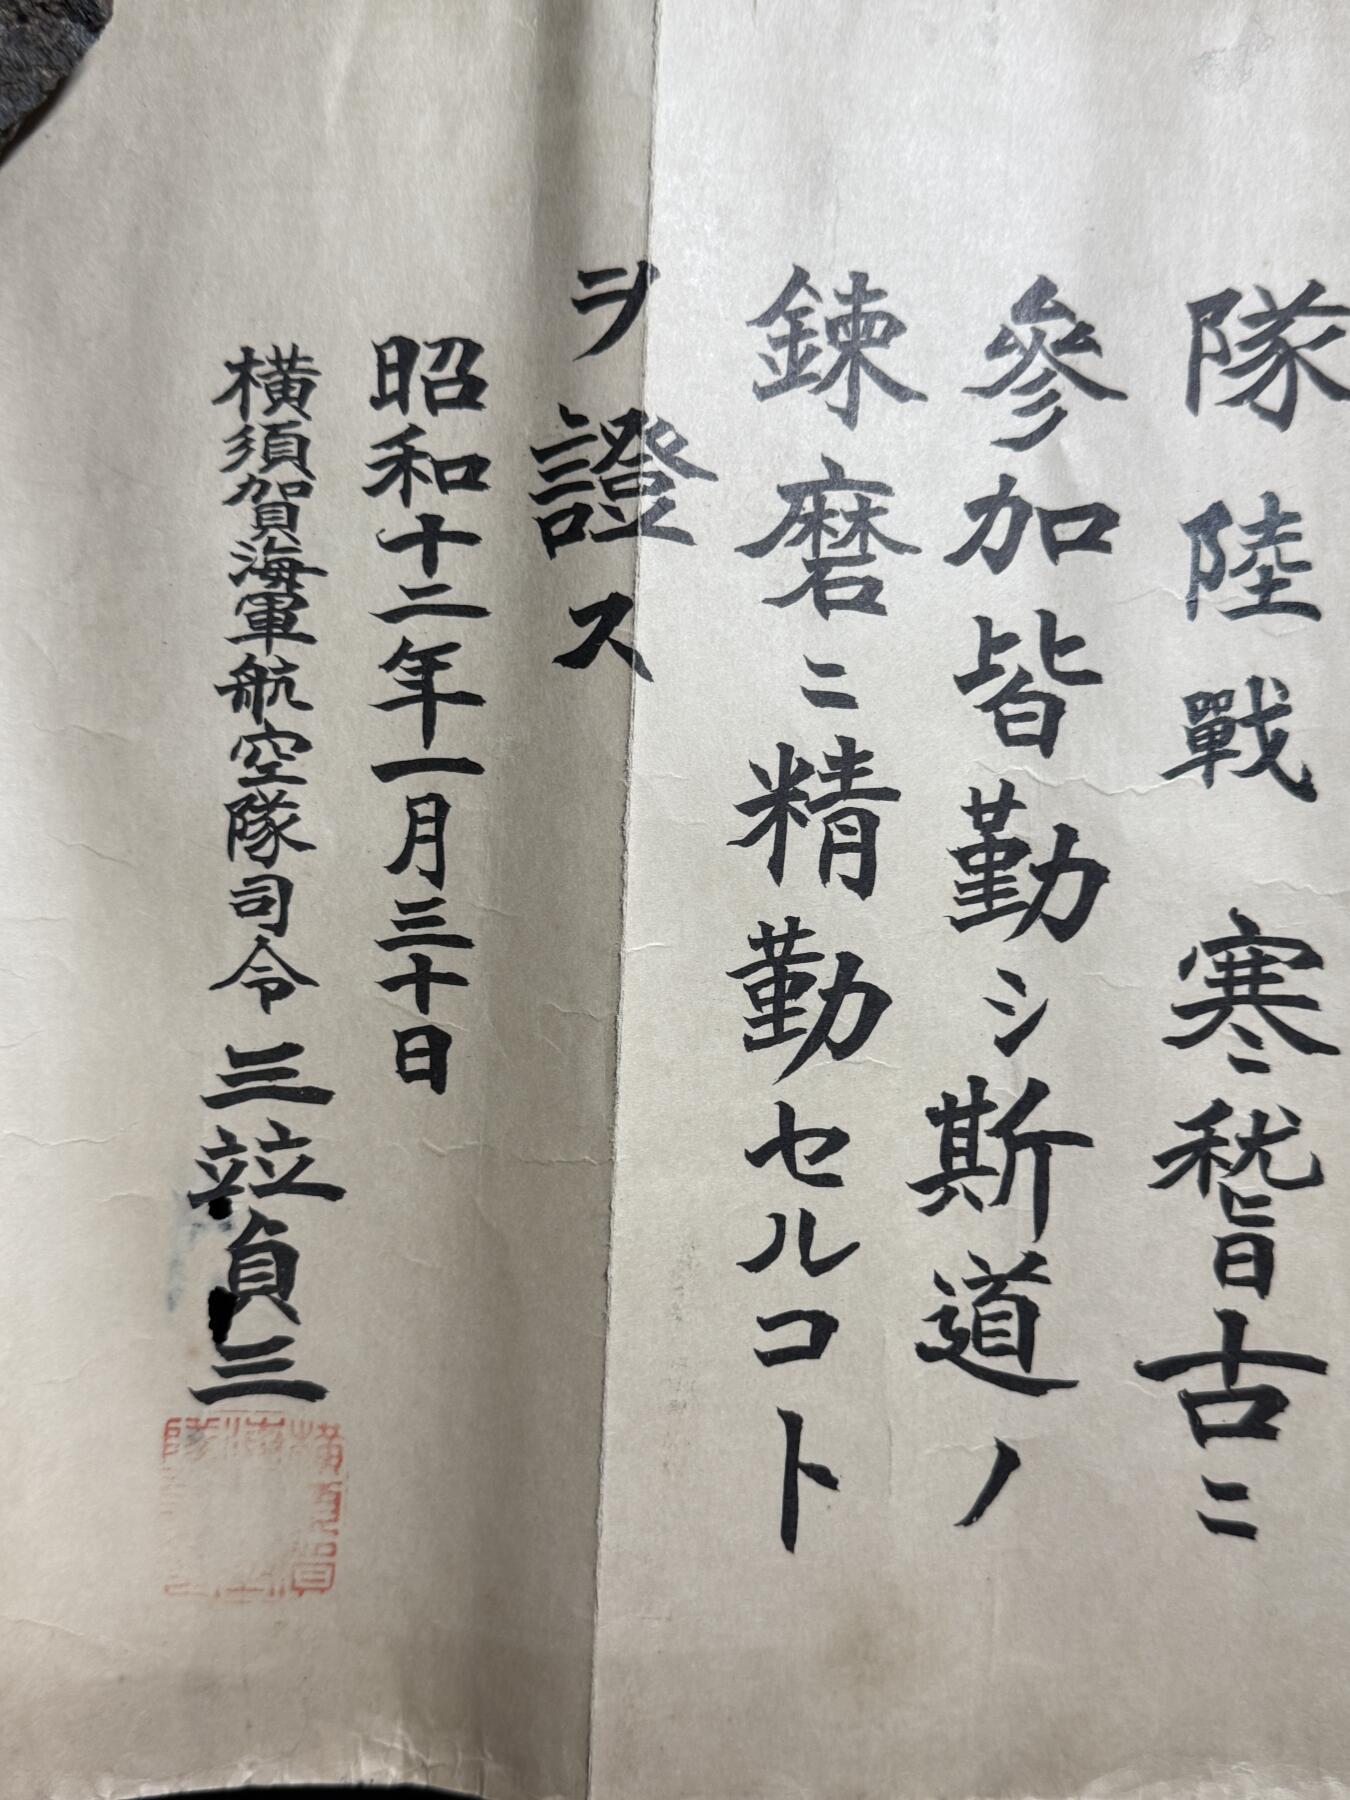 隊陸戰寒稽古ニ
參加皆勤シ斯道ノ
鍊磨ニ精勤セルコト
ヲ證ス
昭和十二年一月三十日
横須賀海軍航空隊司令 三竝貞三